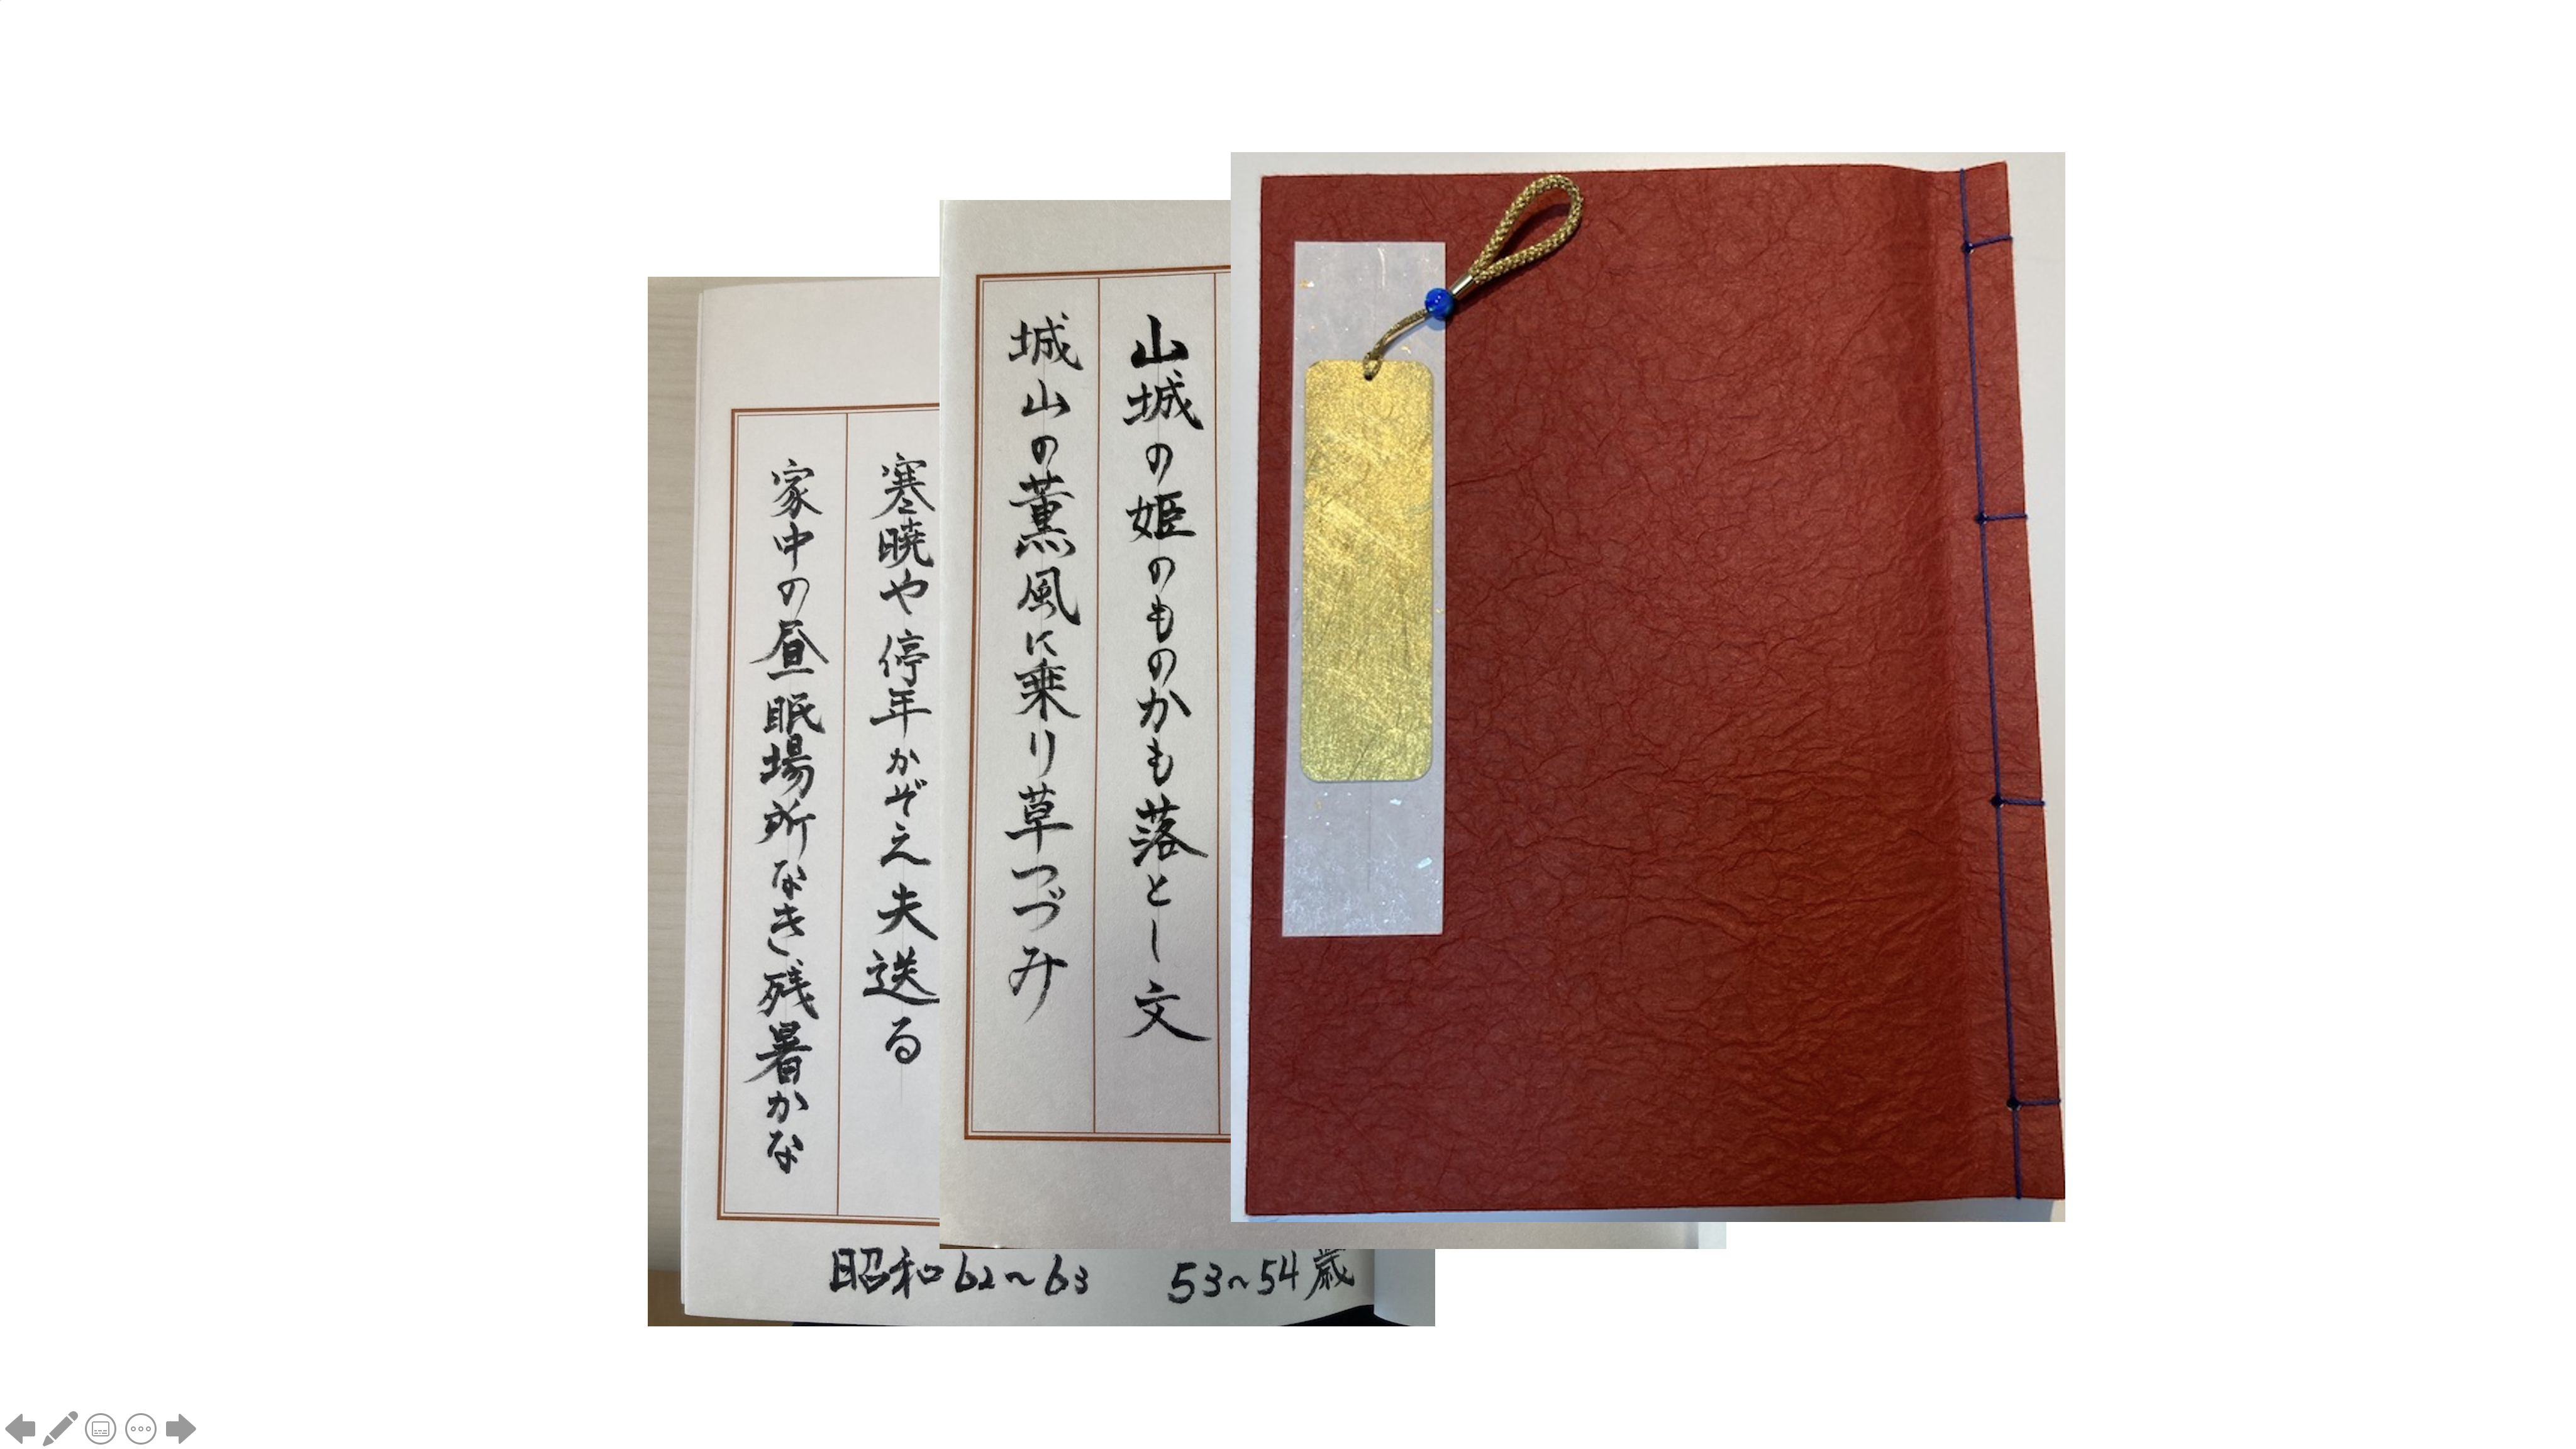 山城の姫のものかも落とし文
城山の薫風に乗り草つづみ
寒暁や停年かぞえ夫送る
家中の昼眠場所なき残暑かな
昭和62~63 53~54歳